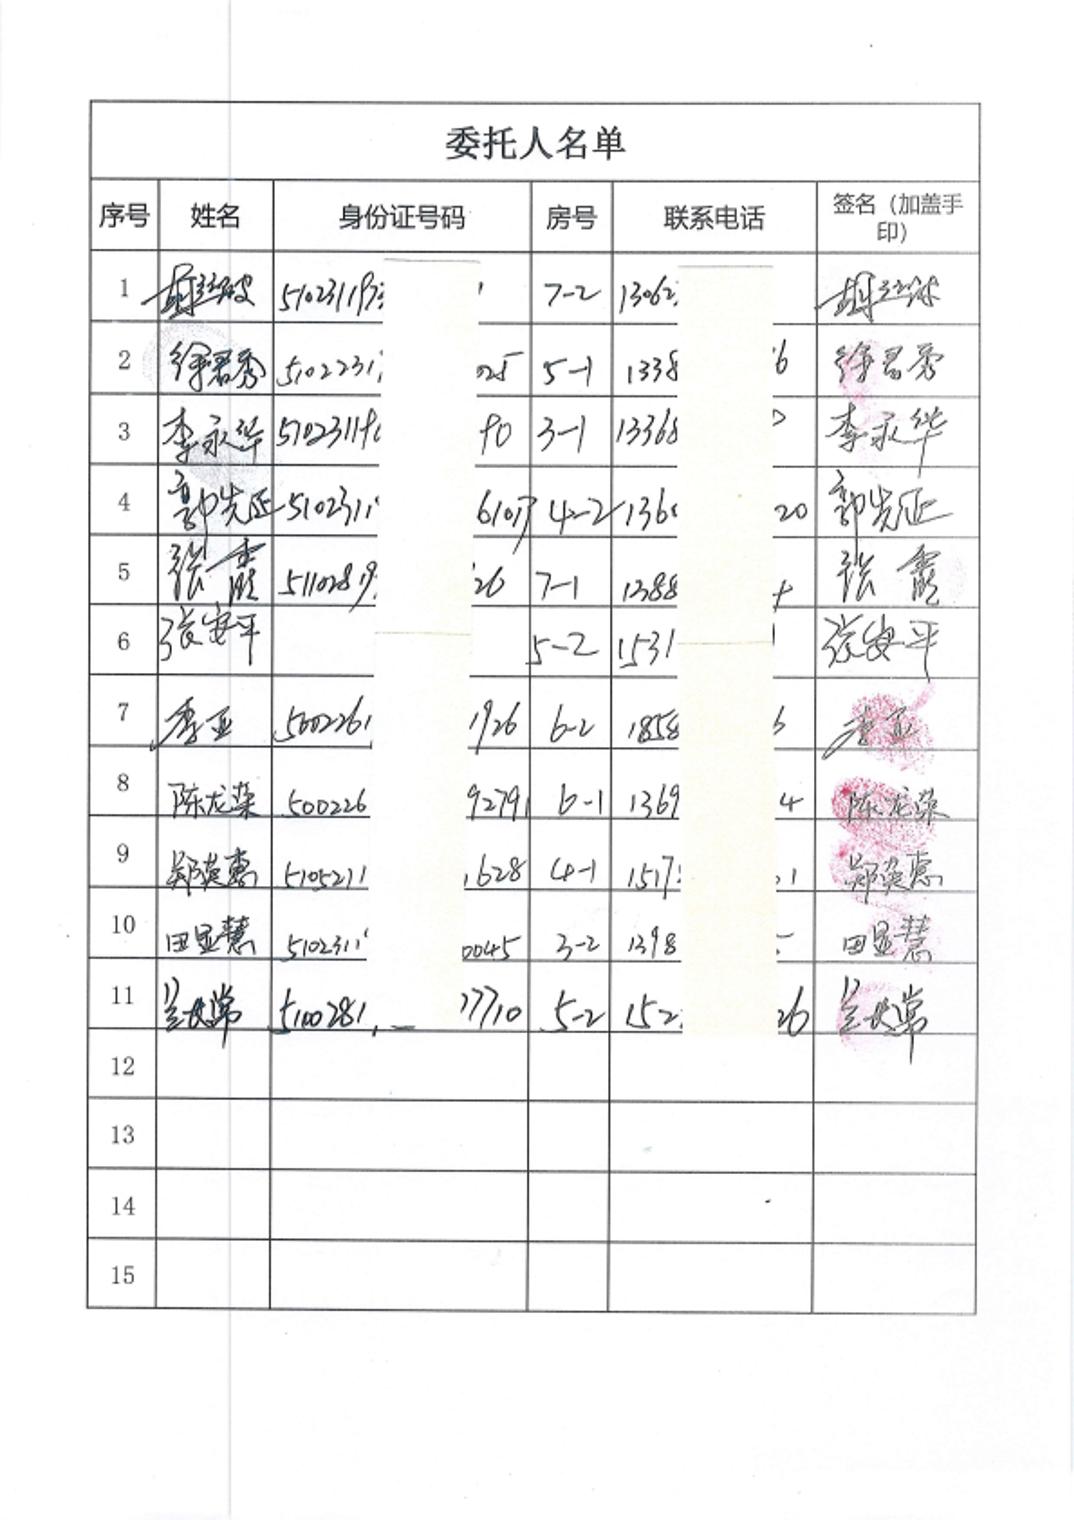 委托人名单
序号 姓名 身份证号码 房号 联系电话 签名（加盖手印）
1 7-2 13062
2 徐君秀 5102231 025 5-1 1338 6 徐君秀
3 李永华 51023119 90 3-1 13368 李永华
4 郭先延 5102311 4-2 136 20 郭先延
5 张霞 51102819 26 7-1 1388 张霞
6 张安平 5-2 1531 张安平
7 李亚 500226 1926 6-2 1858 李亚
8 陈龙燊 500226 9279 6-1 1369 4 陈龙燊
9 郑英惠 5105211 1628 4-1 1517 1 郑英惠
10 田显慧 5102311 0045 3-2 1398 田显慧
11 5100281 7710 5-2 152 26
12
13
14
15